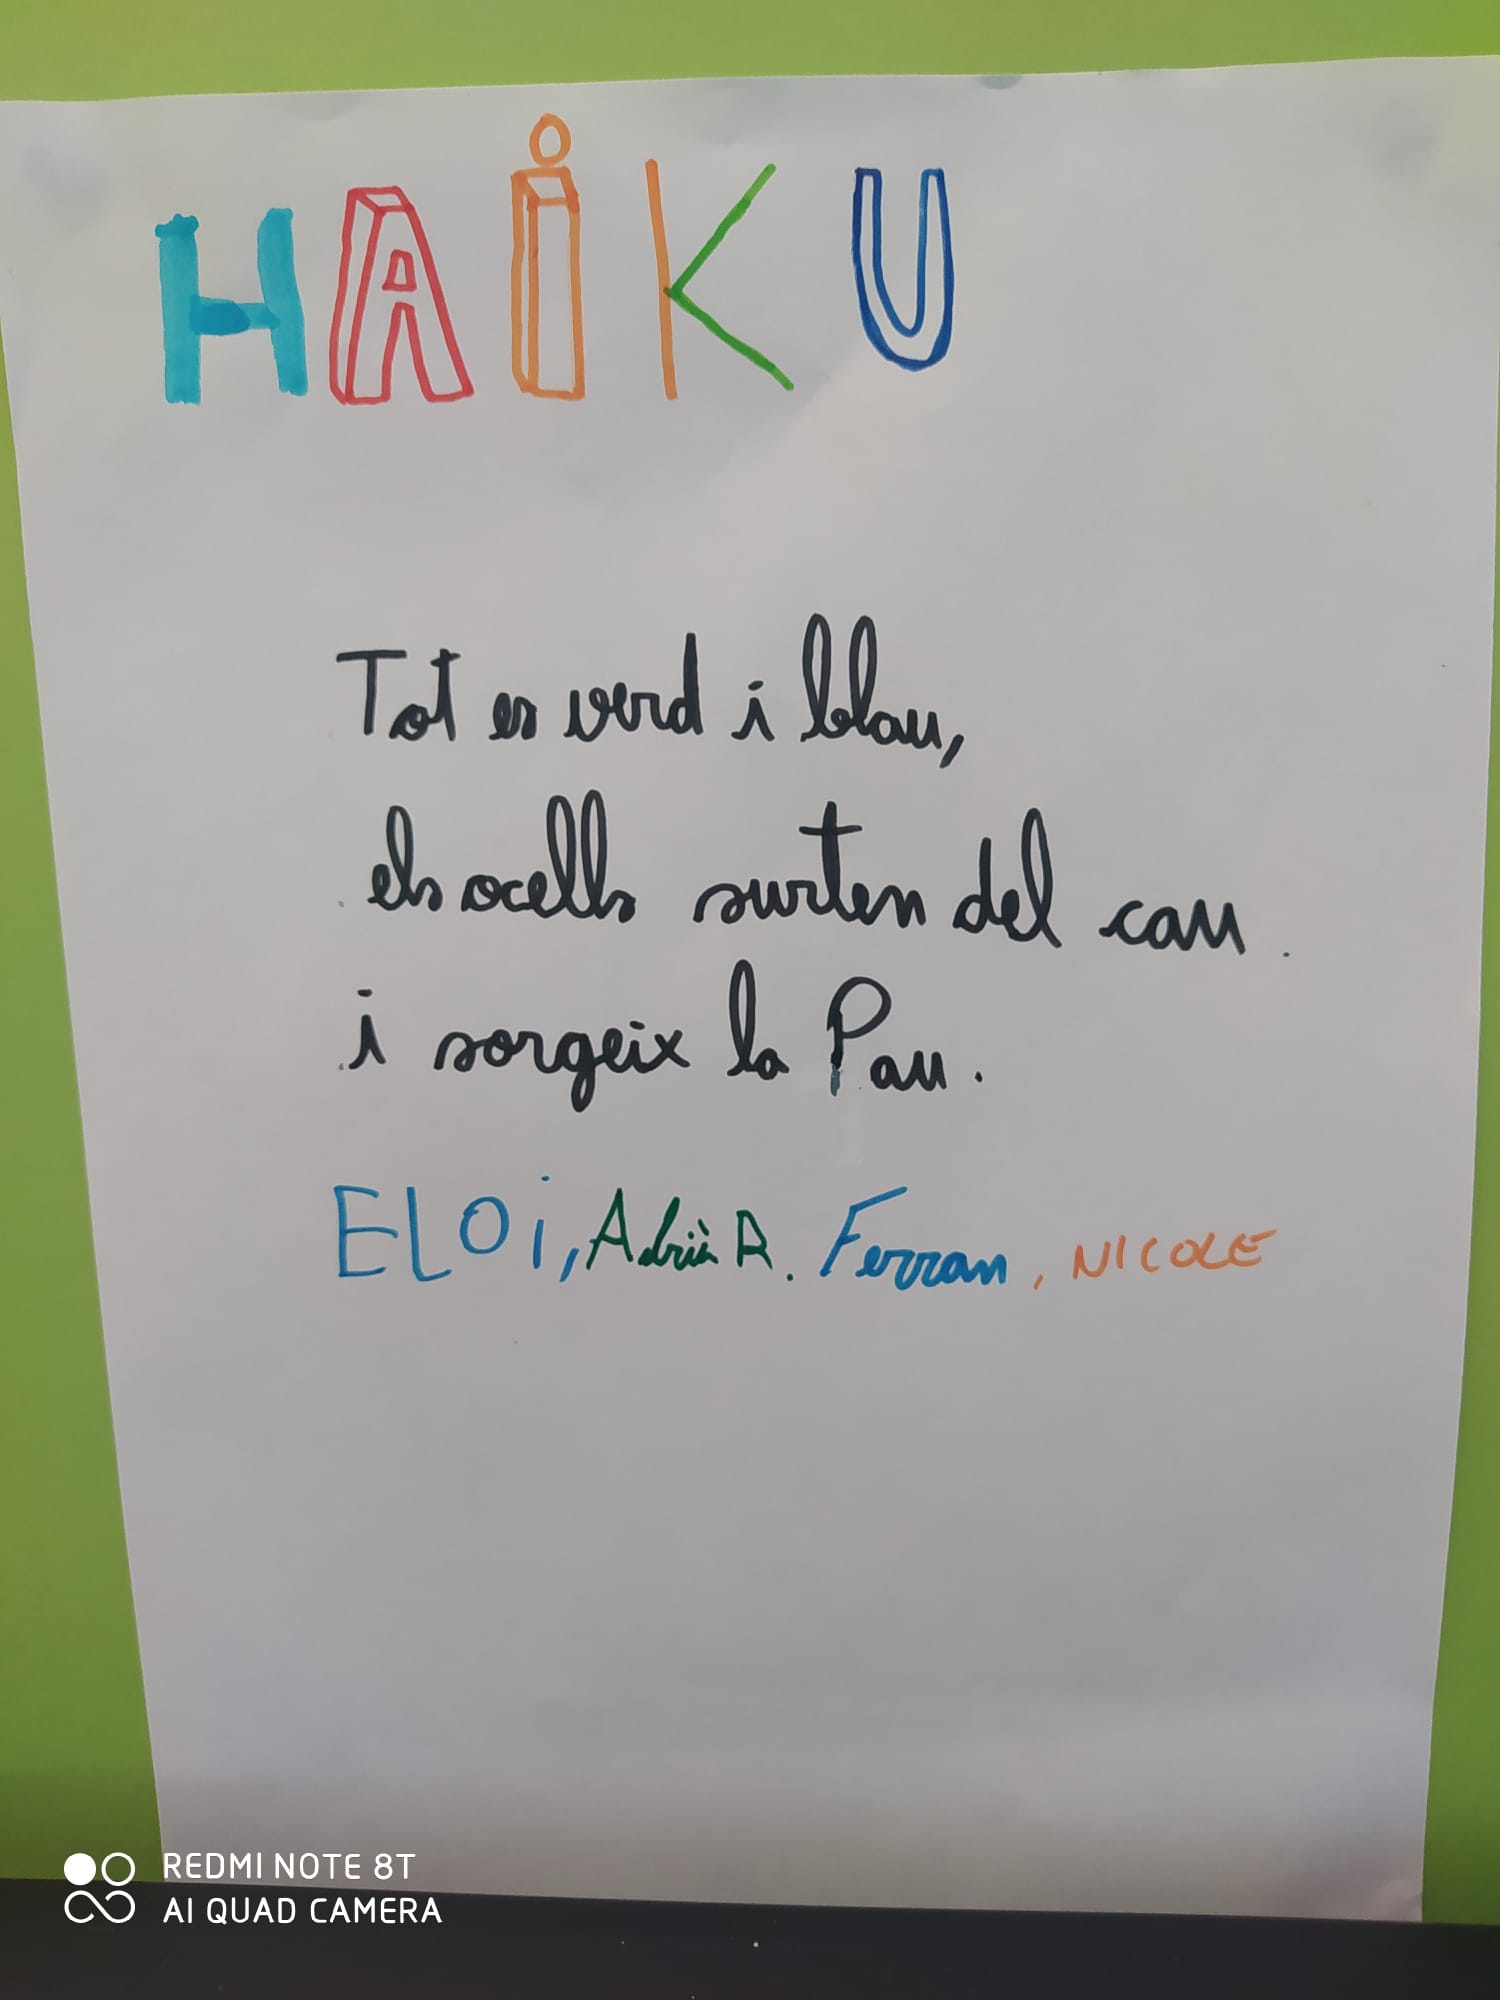 HAiKU
Tot es verd i blau,
els ocells surten del cau
i sorgeix la Pau.
ELOi, Adrià R. Ferran, NICOLE
REDMI NOTE 8T
AI QUAD CAMERA